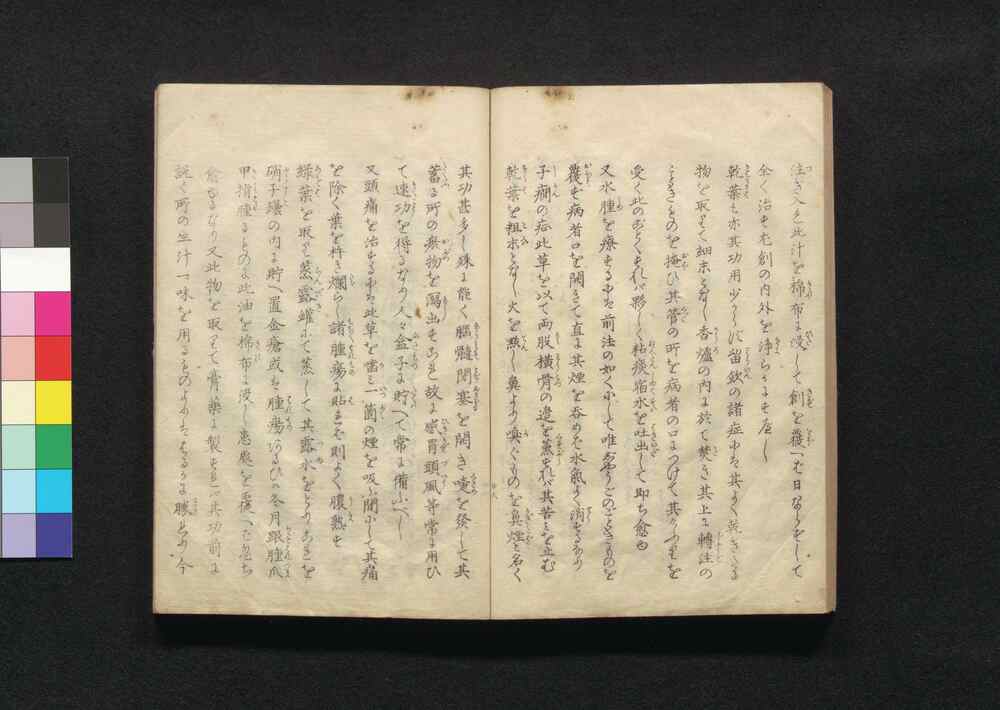 注ぎ入る此汁を棉布に浸して創を覆へむ日ならずして
全く治す老創の内外を淨らにすべし
乾葉も亦其功用少からず留飲の諸症には其よく乾きたる
物を取りて細末となし香爐の内に於て焚き其上に轉注の
ごときものを掩ひ其管の所を病者の口につけて其けふりを
受く此のごとくすれバ夥しく粘痰宿水を吐出して即ち愈ゆ
又水腫を療するには前法の如くにして唯おほうこのごときものを
覆はず病者口を開きて直に其煙を呑めは水氣よく消するなり
子癇の症此草を以て両股横骨の邊を薫すれバ其苦を立む
乾葉を粗末となし火を點し鼻より嗅ぐものを鼻煙と名く
其功甚多し殊に能く腦髓閉塞を開き嚏を發して其
蓄る所の廃物を瀉出すこれ故に感冒頭風等常に用ひ
て速功を得るなり人々盒子に貯へて常に備ふべし
又頭痛を治するには此草を當三一箇の煙を吸ふ間にして其痛
を除く葉を杵き爛らし諸腫瘍に貼すれは則よく膿熟す
綠葉を取りて蒸露罐にて蒸して其露水をとりこれを
硝子壜の内に貯へ置金瘡或は腫瘍あるひハ冬月跟腫爪
甲指腫るものよ此油を棉布に浸し患處を覆へは忽ち
愈るなり又此物を取りて膏藥に製すれバ其功前に
説く所の生汁一味を用るものよりもはるかに勝れり今